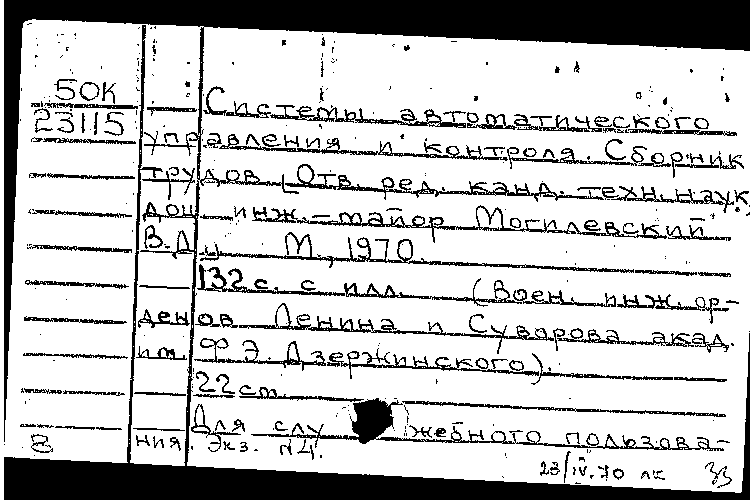 50К
23115
Системы автоматического
управления и контроля. Сборник
трудов [Отв. ред. канд. техн. наук,
доц. инж.-майор Могилевский
В.Д.] М., 1970.
132 с. с илл. (Воен. инж. ор-
денов Ленина и Суворова акад.
им. Ф.Э. Дзержинского).
22 см.
Для служебного пользова-
ния. Экз. №4.
8
23/IV.70 лк